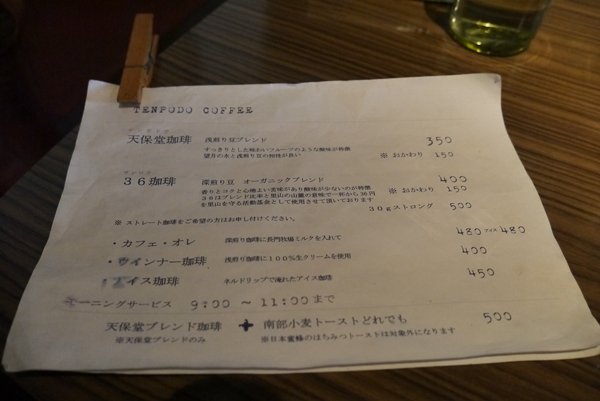 TENPODO COFFEE
天保堂珈琲 浅煎り豆ブレンド 350
すっきりとした味わいフルーツのような酸味が特徴
望月の水と浅煎り豆の相性が良い ※ おかわり 150
36珈琲 深煎り豆 オーガニックブレンド 400
香りとコクと心地よい苦味があり酸味が少ないのが特徴 ※ おかわり 150
36はブレンド比率と里山の山翼の意味で一杯から36円
を里山を守る活動基金として使用させて頂いております
30gストロング 500
※ ストレート珈琲をご希望の方はお申し付けください。
・カフェ・オレ 深煎り珈琲に長門牧場ミルクを入れて 480 アイス 480
・ウインナー珈琲 浅煎り珈琲に100%生クリームを使用 400
・アイス珈琲 ネルドリップで淹れたアイス珈琲 450
モーニングサービス 9:00 ~ 11:00 まで
天保堂ブレンド珈琲 + 南部小麦トーストどれでも 500
※天保堂ブレンドのみ ※日本蜜蜂のはちみつトーストは対象外になります